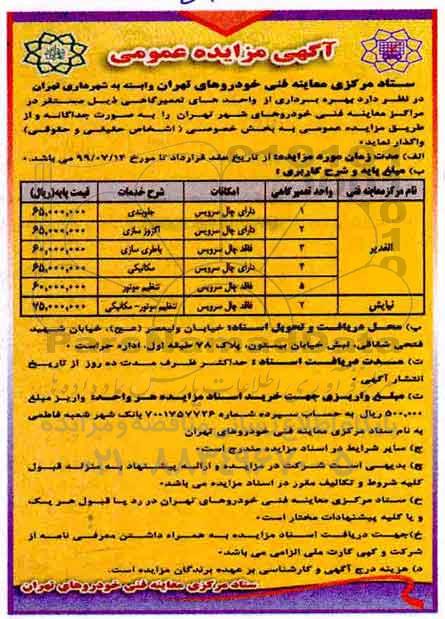 آگهی مزایده عمومی
ستاد مرکزی معاینه فنی خودروهای تهران وابسته به شهرداری تهران
در نظر دارد بهره برداری از واحد های تعمیرگاهی ذیل مستقر در
مراکز معاینه فنی خودروهای شهر تهران را به صورت جداگانه و از
طریق مزایده عمومی به بخش خصوصی ( اشخاص حقیقی و حقوقی)
واگذار نماید:
الف) مدت زمان مورد مزایده: از تاریخ عقد قرارداد تا مورخ ۹۹/۰۷/۱۴ می باشد.
ب) مبلغ پایه و شرح کاربری :
نام مرکزمعاینه فنی واحد تعمیرگاهی امکانات شرح خدمات قیمت پایه(ریال)
الغدیر
۱ دارای چال سرویس جلوبندی ۶۵,۰۰۰,۰۰۰
۲ دارای چال سرویس اگزوز سازی ۶۵,۰۰۰,۰۰۰
۳ فاقد چال سرویس باطری سازی ۶۰,۰۰۰,۰۰۰
۴ دارای چال سرویس مکانیکی ۶۵,۰۰۰,۰۰۰
۵ فاقد چال سرویس تنظیم موتور ۶۰,۰۰۰,۰۰۰
نیایش ۲ فاقد چال سرویس تنظیم موتور- مکانیکی ۷۵,۰۰۰,۰۰۰
پ) محل دریافت و تحویل اسناد: خیابان ولیعصر (عج)، خیابان شهید
فتحی شقاقی، نبش خیابان بیستون، پلاک ۷۸ طبقه اول، اداره حراست
ت) مدت دریافت اسناد : حداکثر ظرف مدت ده روز از تاریخ
انتشار آگهی
ث) مبلغ واریزی جهت خرید اسناد مزایده هر واحد: واریز مبلغ
۵۰۰,۰۰۰ ریال به حساب سپرده شماره ۷۰۰۱۷۵۷۷۲۶ بانک شهر شعبه فاطمی
به نام ستاد مرکزی معاینه فنی خودروهای تهران
ج) سایر شرایط در اسناد مزایده مندرج است.
چ) بدیهی است شرکت در مزایده و ارائه پیشنهاد به منزله قبول
کلیه شروط و تکالیف مقرر در اسناد مزایده می باشد.
ح) ستاد مرکزی معاینه فنی خودروهای تهران در رد یا قبول هر یک
و یا کلیه پیشنهادات مختار است
خ) جهت دریافت اسناد مزایده به همراه داشتن معرفی نامه از
شرکت و کپی کارت ملی الزامی می باشد.
د) هزینه درج آگهی و کارشناسی بر عهده برندگان مزایده است.
ستاد مرکزی معاینه فنی خودروهای تهران